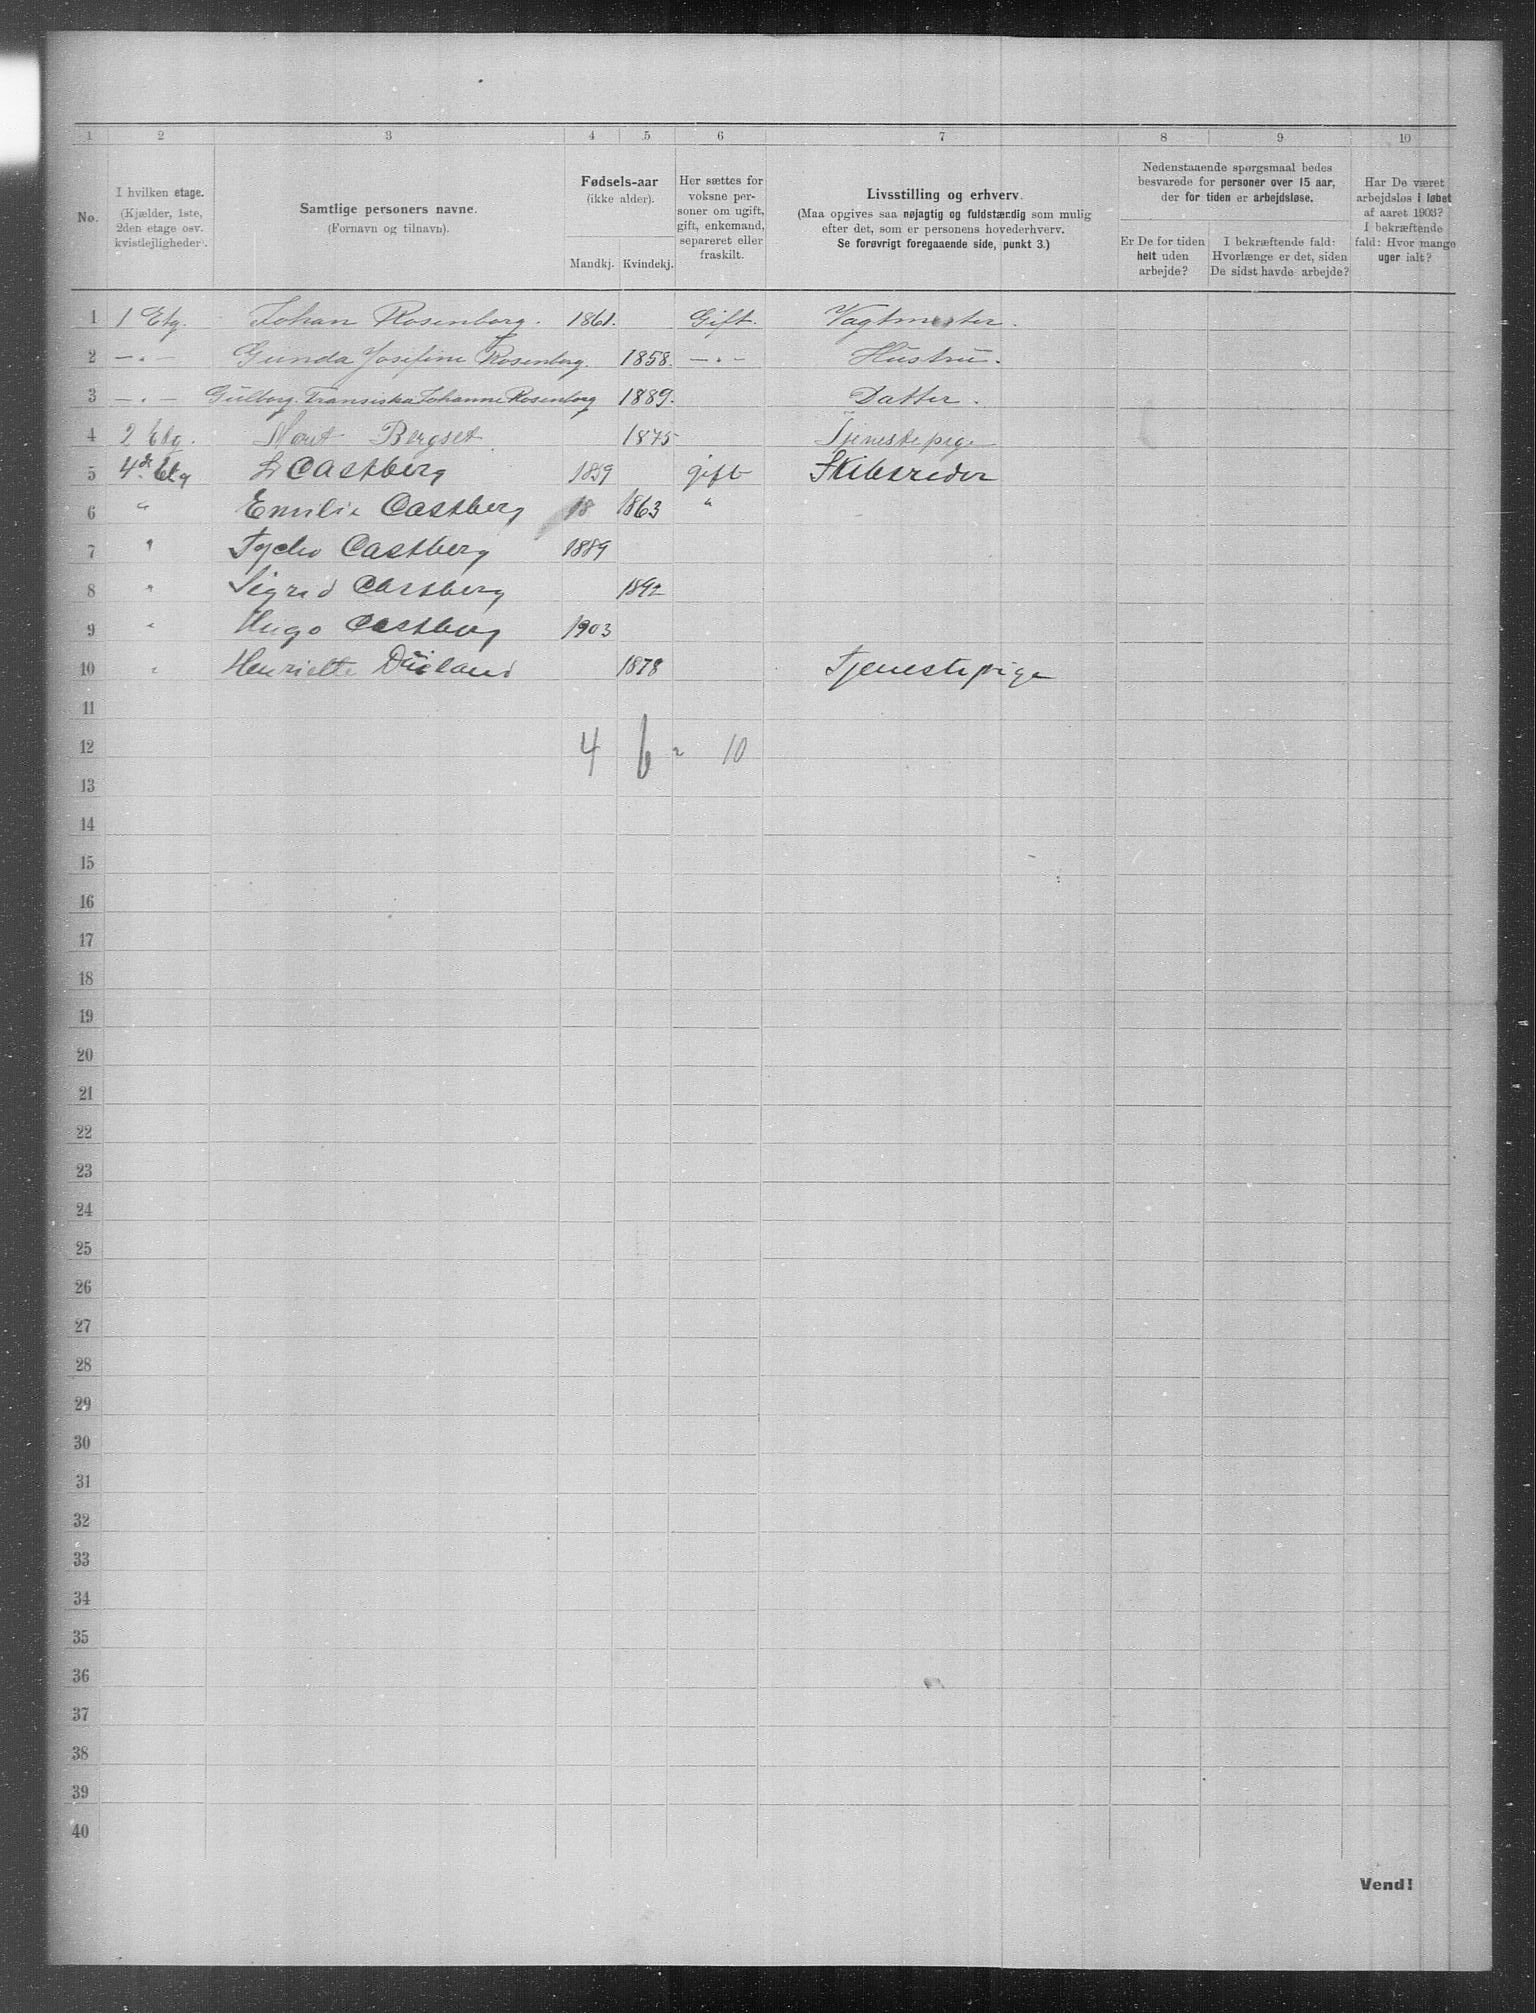 1 2 3 4 5 6 7 8 9 10
No.
I hvilken etage.
(Kjælder, 1ste,
2den etage osv.
kvistlejligheder).
Samtlige personers navne.
(Fornavn og tilnavn).
Fødsels-aar
(ikke alder).
Mandkj. Kvindekj.
Her sættes for
voksne per-
soner om ugift,
gift, enkemand,
separeret eller
fraskilt.
Livsstilling og erhverv.
(Maa opgives saa nøjagtig og fuldstændig som mulig
efter det, som er personens hovederhverv.
Se forøvrigt foregaaende side, punkt 3.)
Nedenstaaende spørgsmaal bedes
besvarede for personer over 15 aar,
der for tiden er arbejdsløse.
Er De for tiden
helt uden
arbejde?
I bekræftende fald:
Hvorlænge er det, siden
De sidst havde arbejde?
Har De været
arbejdsløs i løbet
af aaret 1903?
I bekræftende
fald: Hvor mange
uger ialt?
1 1 Etg. Johan Rosenborg. 1861. Gift. Vagtmester.
2 —„— Gunda Josefine Rosenborg. 1858. —„— Hustru.
3 —„— Gulborg Fransiska Johanne Rosenborg 1889. Datter.
4 2 Etg. Marit Bergset 1875 Tjenestepige
5 4de Etg Castberg 1859 gift Skibsreder
6 " Emilie Castberg 18 1863 "
7 " Tycho Castberg 1889
8 " Sigrid Castberg 1892
9 " Hugo Castberg 1903
10 " Henriette 1878 Tjenestepige
11
12 4 6 = 10
13
14
15
16
17
18
19
20
21
22
23
24
25
26
27
28
29
30
31
32
33
34
35
36
37
38
39
40
Vend!